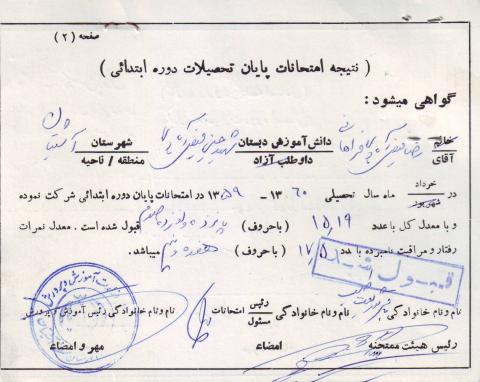 صفحه (۲)
( نتیجه امتحانات پایان تحصیلات دوره ابتدائی )
گواهی میشود:
خانم
آقای
دانش‌آموزی دبستان
داوطلب آزاد
شهرستان
منطقه / ناحیه
آشتیان
در خرداد
شهریور ماه سال تحصیلی ۱۳۶۰ - ۱۳۵۹ در امتحانات پایان دوره ابتدائی شرکت نموده
و با معدل کل با عدد ۱۵,۱۹ (باحروف) پانزده و نوزده صدم قبول شده است. معدل نمرات
رفتار و مراقبت نامبرده با عدد ۱۷,۵ (باحروف) هفده و نیم میباشد.
قبول شد
نام و نام خانوادگی
نام و نام خانوادگی رئیس
مسئول امتحانات
نام و نام خانوادگی رئیس آموزش و پرورش
رئیس هیئت ممتحنه
امضاء
مهر و امضاء